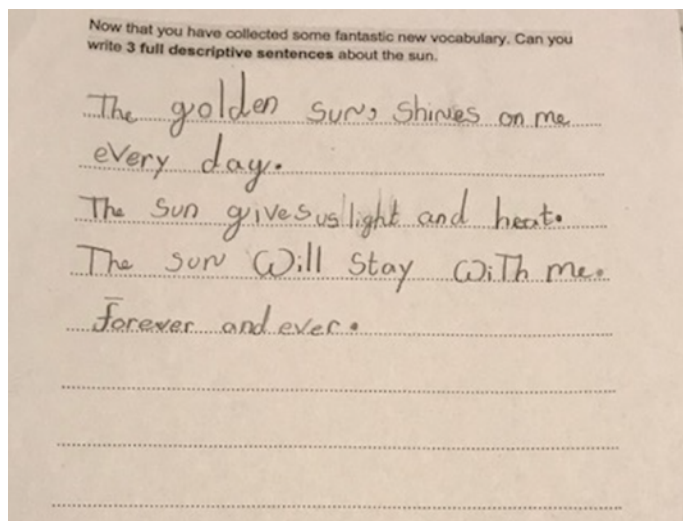 Now that you have collected some fantastic new vocabulary. Can you
write 3 full descriptive sentences about the sun.
The golden sun, shines on me
every day.
The sun gives us light and heat.
The sun will stay with me.
forever and ever.